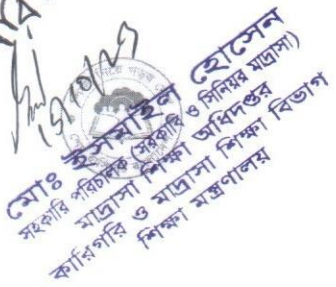 মোঃ ইসমাইল হোসেন
সহকারি পরিচালক (সরকারি ও সিনিয়র মাদ্রাসা)
মাদ্রাসা শিক্ষা অধিদপ্তর
কারিগরি ও মাদ্রাসা শিক্ষা বিভাগ
শিক্ষা মন্ত্রণালয়